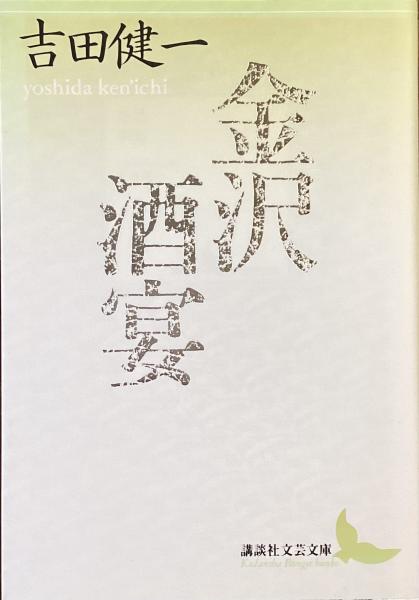 吉田健一
yoshida ken'ichi
金沢
酒宴
講談社文芸文庫
Kodansha Bungei bunko